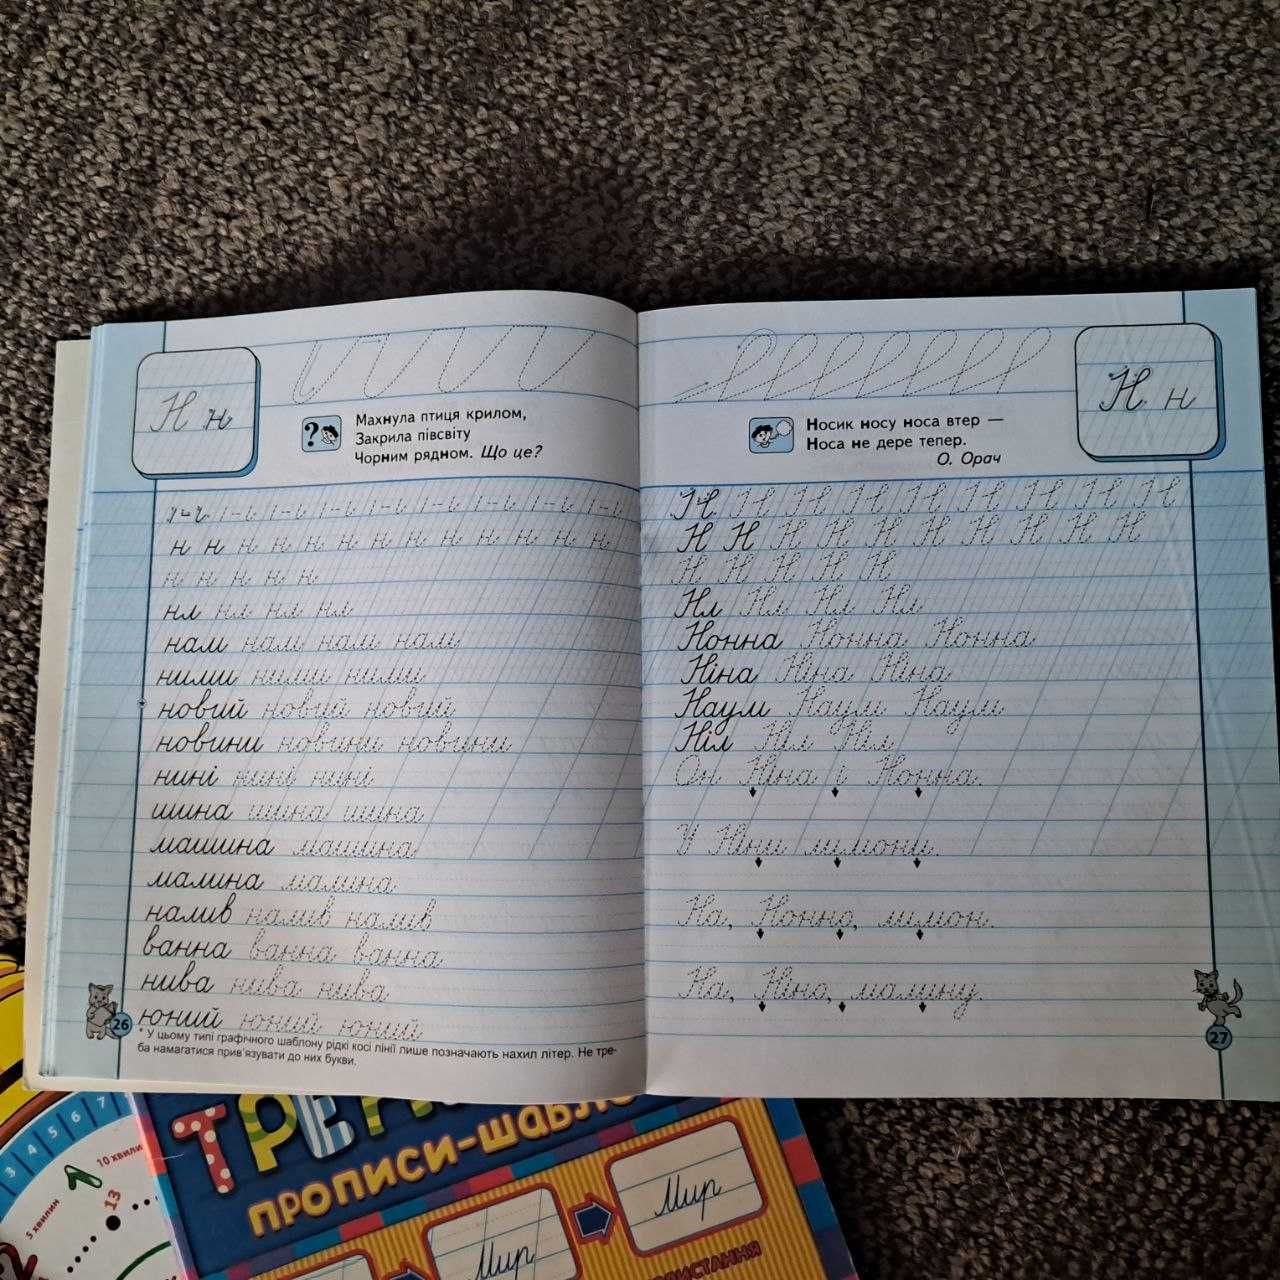 Н н
?
Махнула птиця крилом,
Закрила півсвіту
Чорним рядном. Що це?
н н н н н н н н н н н н
н н н н н
нл нл нл нл
нам нам нам нам
ними ними ними
новий новий новий
новини новини новини
нині нині нині
шина шина шина
машина машина
малина малина
налив налив налив
ванна ванна ванна
нива нива нива
юний юний юний
26
* У цьому типі графічного шаблону рідкі косі лінії лише позначають нахил літер. Не тре-
ба намагатися прив'язувати до них букви.
Н н
Носик носу носа втер —
Носа не дере тепер.
О. Орач
Н Н Н Н Н Н Н Н Н Н
Н Н Н Н Н
Нл Нл Нл Нл
Нонна Нонна Нонна
Ніна Ніна Ніна
Наум Наум Наум
Ніл Ніл Ніл
Он Ніна і Нонна.
У Ніни лимони.
На, Нонно, лимон.
На, Ніно, малину.
27
ПРОПИСИ-ШАБЛО
Мир
Мир
3 4 5 6 7
5 хвилин
10 хвили
13